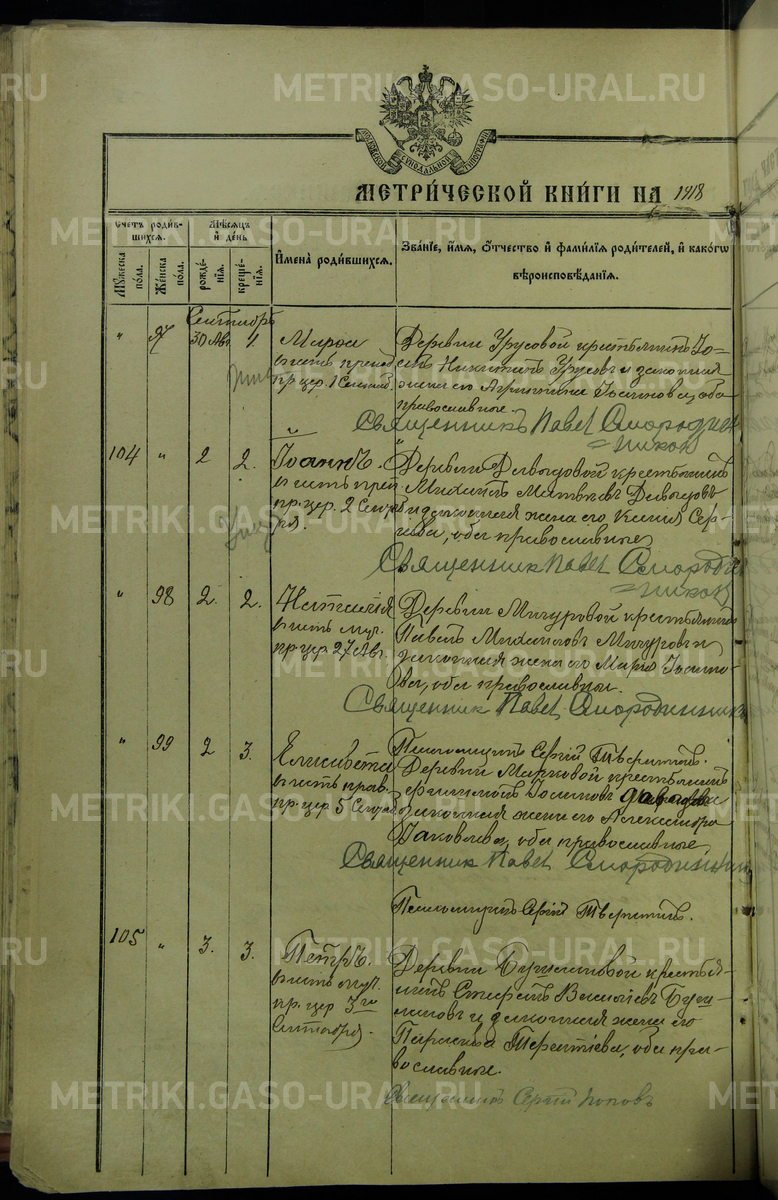 METRIKI.GASO-URAL.RU
МЕТРИ́ЧЕСКОЙ КНИ́ГИ НА 1918
Счетъ роди́в-
шихся.
Мѣсяцъ
и́ де́нь
Му́жеска
по́ла.
Же́нска
по́ла.
рожде́-
нія.
креще́-
нія.
И҆мена̀ роди́вшихся.
Зва́ніе, и҆́мя, ѻ҆́тчество и҆ фами́лія роди́телей, и҆ како́гѡ
вѣроисповѣ́данія.
Сентябрь
" 97 30 Авг. 1.
въ честь препод.
пр. цер. 1 Сентяб.
Деревни Урусовой крестьянинъ Іо-
сифъ Никитинъ Урусовъ и законная
жена его Агрипина Іоаннова, оба
православные.
Священникъ Павел Смородин-
=ников
104 " 2 2. Іоаннъ.
въ честь преп.
пр. цер. 2 Сентяб-
ря.
Деревни Давыдовой крестьянинъ
Михаилъ Матвѣевъ Давыдовъ
и законная жена его Ксенія Сер-
гѣева, оба православные
Священник Павел Смородин-
=ников
" 98 2. 2. Наталія
въ честь муч.
пр. цер. 27 Авг.
Деревни Мичуровой крестьянинъ
Павелъ Михайловъ Мичуровъ и
законная жена его Марія Іоанно-
ва, оба православные.
Священник Павел Смородинников
Псаломщикъ Сергій Тверитинъ.
" 99 2 3. Елисавета
въ честь прав.
пр. цер. 5 Сентяб.
Деревни Марковой крестьянинъ
Іоанновъ
законная жена его Александра
Іаковлева, оба православные
Священник Павел Смородинников
Псаломщикъ Сергій Тверитинъ.
105 " 3. 3. Петръ.
въ честь муч.
пр. цер 3го
Сентября.
Деревни крестья-
нинъ Василіевъ
и законная жена его
Параскева Терентіева, оба пра-
вославные.
Священникъ Сергій Поповъ